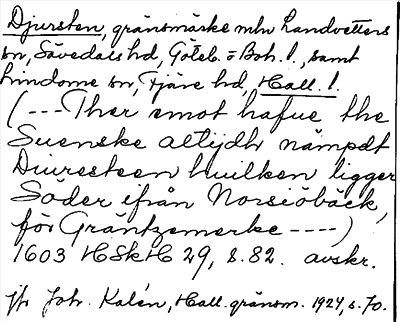 Djursten, gränsmärke mln Landvetters
sn, Sävedals hd, Göteb. o Boh. l., samt
Lindome sn, Fjäre hd, Hall. l.
(---Ther emot hafue the
Suenske altijdh nämpdt
Diuresteen huilken ligger
Söder ifrån Norsiöbäck,
för Gräntzemerke ----)
1603 HSkH 29, s. 82. avskr.
Jfr Joh. Kalén, Hall. gränsm. 1924, s. 70.